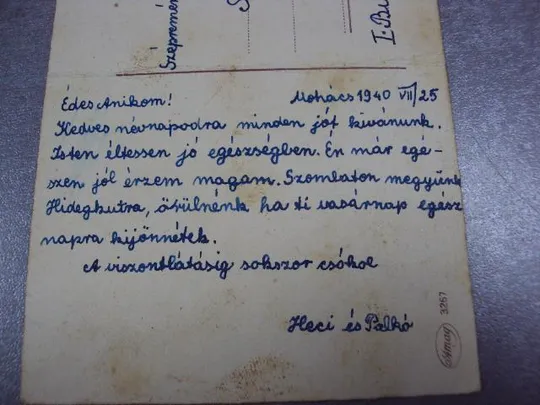 Szepremé
S
I. Bu
Édes Anikom! Mohács 1940 VII/25
Kedves névnapodra minden jót kivánunk.
Isten éltessen jó egészségben. Én már egé-
szen jól érzem magam. Szombaton megyünk
Hidegkutra, örülnénk ha ti vasárnap egész
napra kijönnétek.
A viszontlátásig sokszor csókol
Heci és Palkó
3267